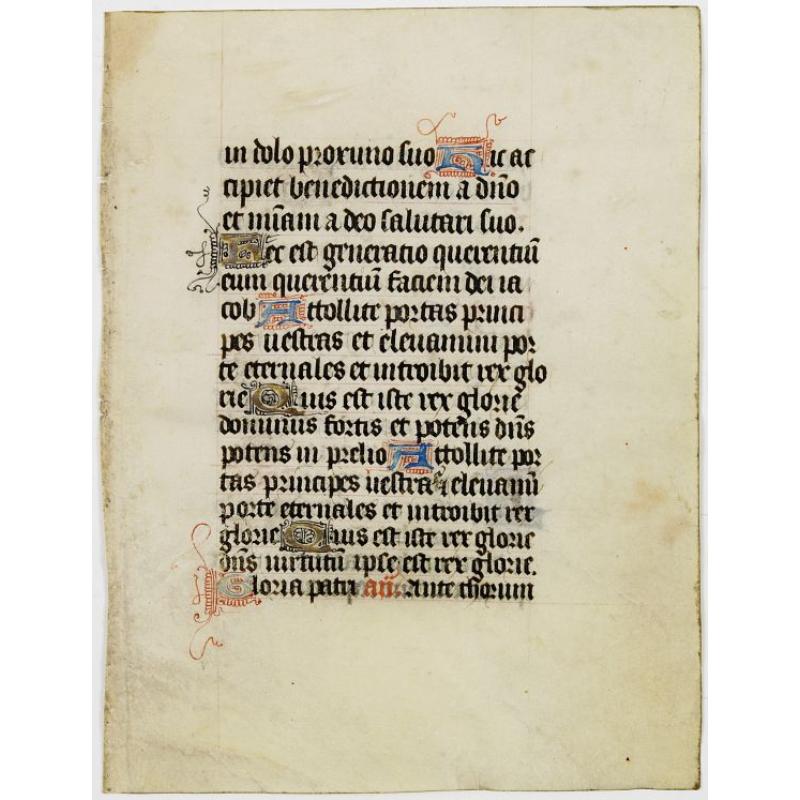 in dolo proximo suo Hic ac
cipiet benedictionem a dño
et miam a deo salutari suo.
Hec est generatio querentiū
eum querentiū faciem dei ia
cob Attollite portas princi
pes uestras et eleuamini por
te eternales et introibit rex glo
rie Quis est iste rex glorie
dominus fortis et potens dñs
potens in prelio Attollite por
tas principes uestras eleuamī
porte eternales et introibit rex
glorie Quis est iste rex glorie
dñs uirtutū ipse est rex glorie.
Gloria patri añ. Ante thorum